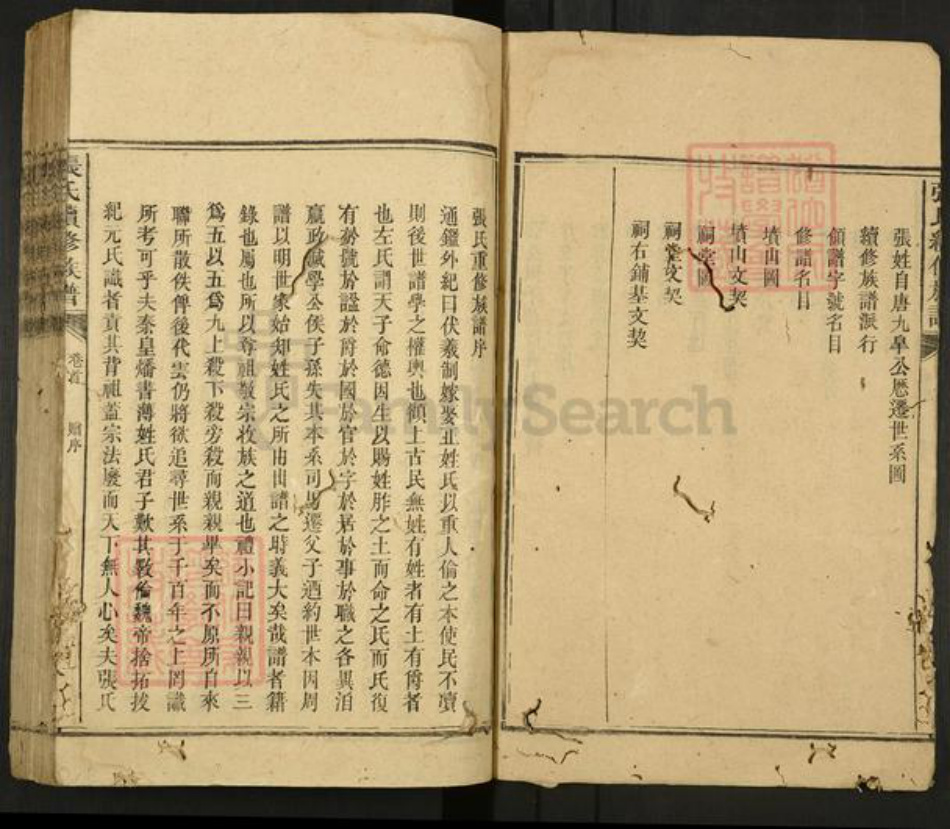 張氏續修族譜
張姓自唐九皐公歷遷世系圖
續修族譜派行
領譜字號名目
修譜名目
墳山圖
墳山文契
祠堂圖
祠堂文契
祠右鋪基文契
張氏重修族譜序
通鑑外紀曰伏羲制嫁娶正姓氏以重人倫之本使民不瀆
則後世譜學之權輿也顧上古民無姓有姓者有土有爵者
也左氏謂天子命德因生以賜姓胙之土而命之氏而氏復
有於號於諡於爵於國於官於字於居於事於職之各異洎
嬴政滅學公侯子孫失其本系司馬遷父子迺約世本因周
譜以明世家始知姓氏之所由由譜之時義大矣哉譜者籍
錄也屬也所以尊祖敬宗收族之道也禮小記曰親親以三
爲五以五爲九上殺下殺旁殺而親親畢矣而不原所自來
聯所散佚俾後代雲仍將欲追尋世系于千百年之上罔識
所考可乎夫秦皇燔書薄姓氏君子歎其斁倫魏帝捨拓拔
紀元氏識者責其背祖蓋宗法廢而天下無人心矣夫張氏
張氏續修族譜
卷首
贈序
FamilySearch